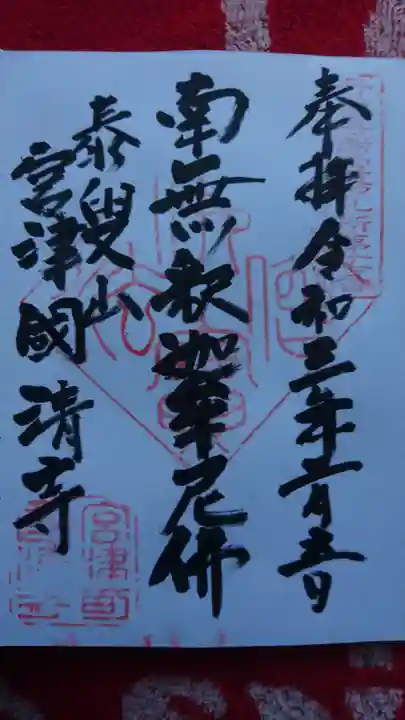 奉拝令和三年二月五日
南無釈迦牟尼佛
泰叟山
宮津國清寺